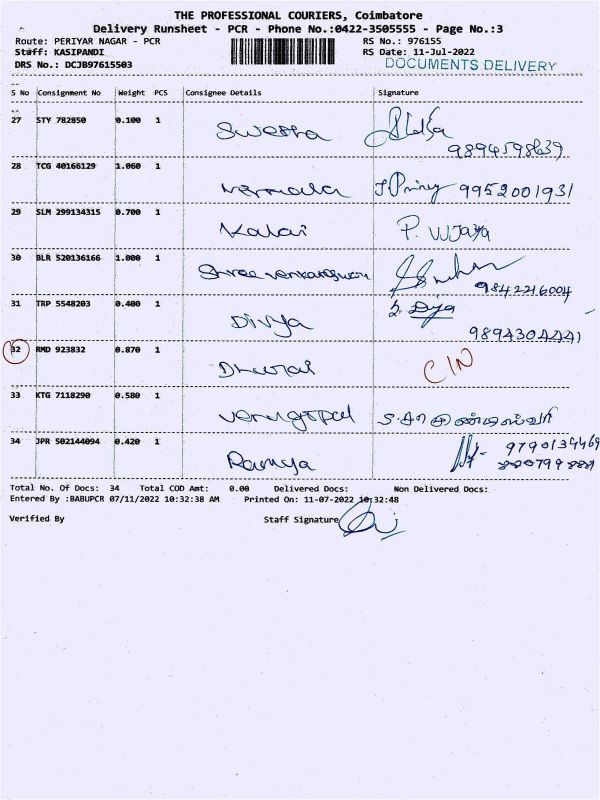 THE PROFESSIONAL COURIERS, Coimbatore
Delivery Runsheet - PCR - Phone No.:0422-3505555 - Page No.:3
Route: PERIYAR NAGAR - PCR RS No.: 976155
Staff: KASIPANDI RS Date: 11-Jul-2022
DRS No.: DCJB97615503 DOCUMENTS DELIVERY
S No Consignment No Weight PCS Consignee Details Signature
27 STY 782850 0.100 1 Swetha
9894598639
28 TCG 40166129 1.060 1 Nirmala 9952001931
29 SLM 299134315 0.700 1 Kalai P. Vijaya
30 BLR 520136166 1.000 1 Shree
9842216004
31 TRP 5548203 0.400 1 Divya
9894304441
32 RMD 923832 0.870 1 Dhurai C/N
33 KTG 7118290 0.580 1 Venugopal
34 JPR 502144094 0.420 1 Ramya 9790139469
Total No. Of Docs: 34 Total COD Amt: 0.00 Delivered Docs: Non Delivered Docs:
Entered By :BABUPCR 07/11/2022 10:32:38 AM Printed On: 11-07-2022 10:32:48
Verified By Staff Signature